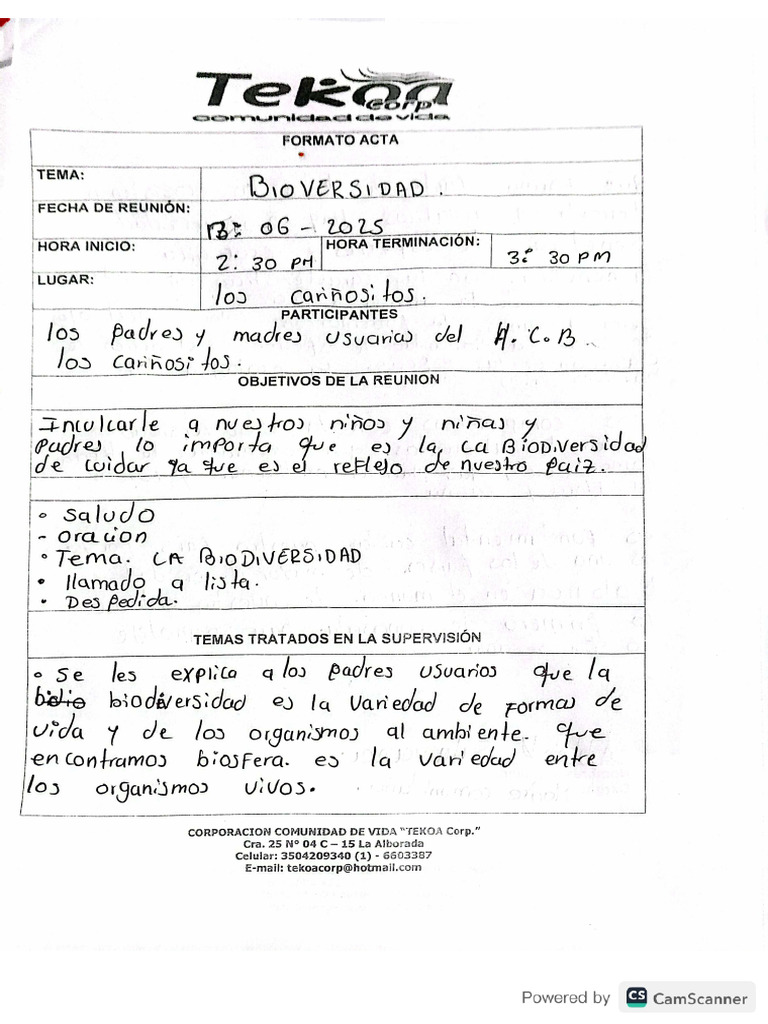 Tekoa
corp
comunidad de vida
FORMATO ACTA
TEMA: BIOVERSIDAD.
FECHA DE REUNIÓN: 13: 06 - 2025
HORA INICIO: 2: 30 PM HORA TERMINACIÓN: 3: 30 PM
LUGAR: los cariñositos.
PARTICIPANTES
los padres y madres usuarias del H.C.B.
los cariñositos.
OBJETIVOS DE LA REUNION
Inculcarle a nuestros niños y niñas y
padres lo importa que es la LA BIODIVERSIDAD
de cuidar ya que es el reflejo de nuestro paiz.
• saludo
- oracion
• Tema. LA BIODIVERSIDAD
• llamado a lista.
• Despedida.
TEMAS TRATADOS EN LA SUPERVISIÓN
• Se les explica a los padres usuarios que la
biodiversidad es la variedad de formas de
vida y de los organismos al ambiente. que
encontramos biosfera. es la variedad entre
los organismos vivos.
CORPORACION COMUNIDAD DE VIDA "TEKOA Corp."
Cra. 25 N° 04 C – 15 La Alborada
Celular: 3504209340 (1) - 6603387
E-mail: tekoacorp@hotmail.com
Powered by CS CamScanner